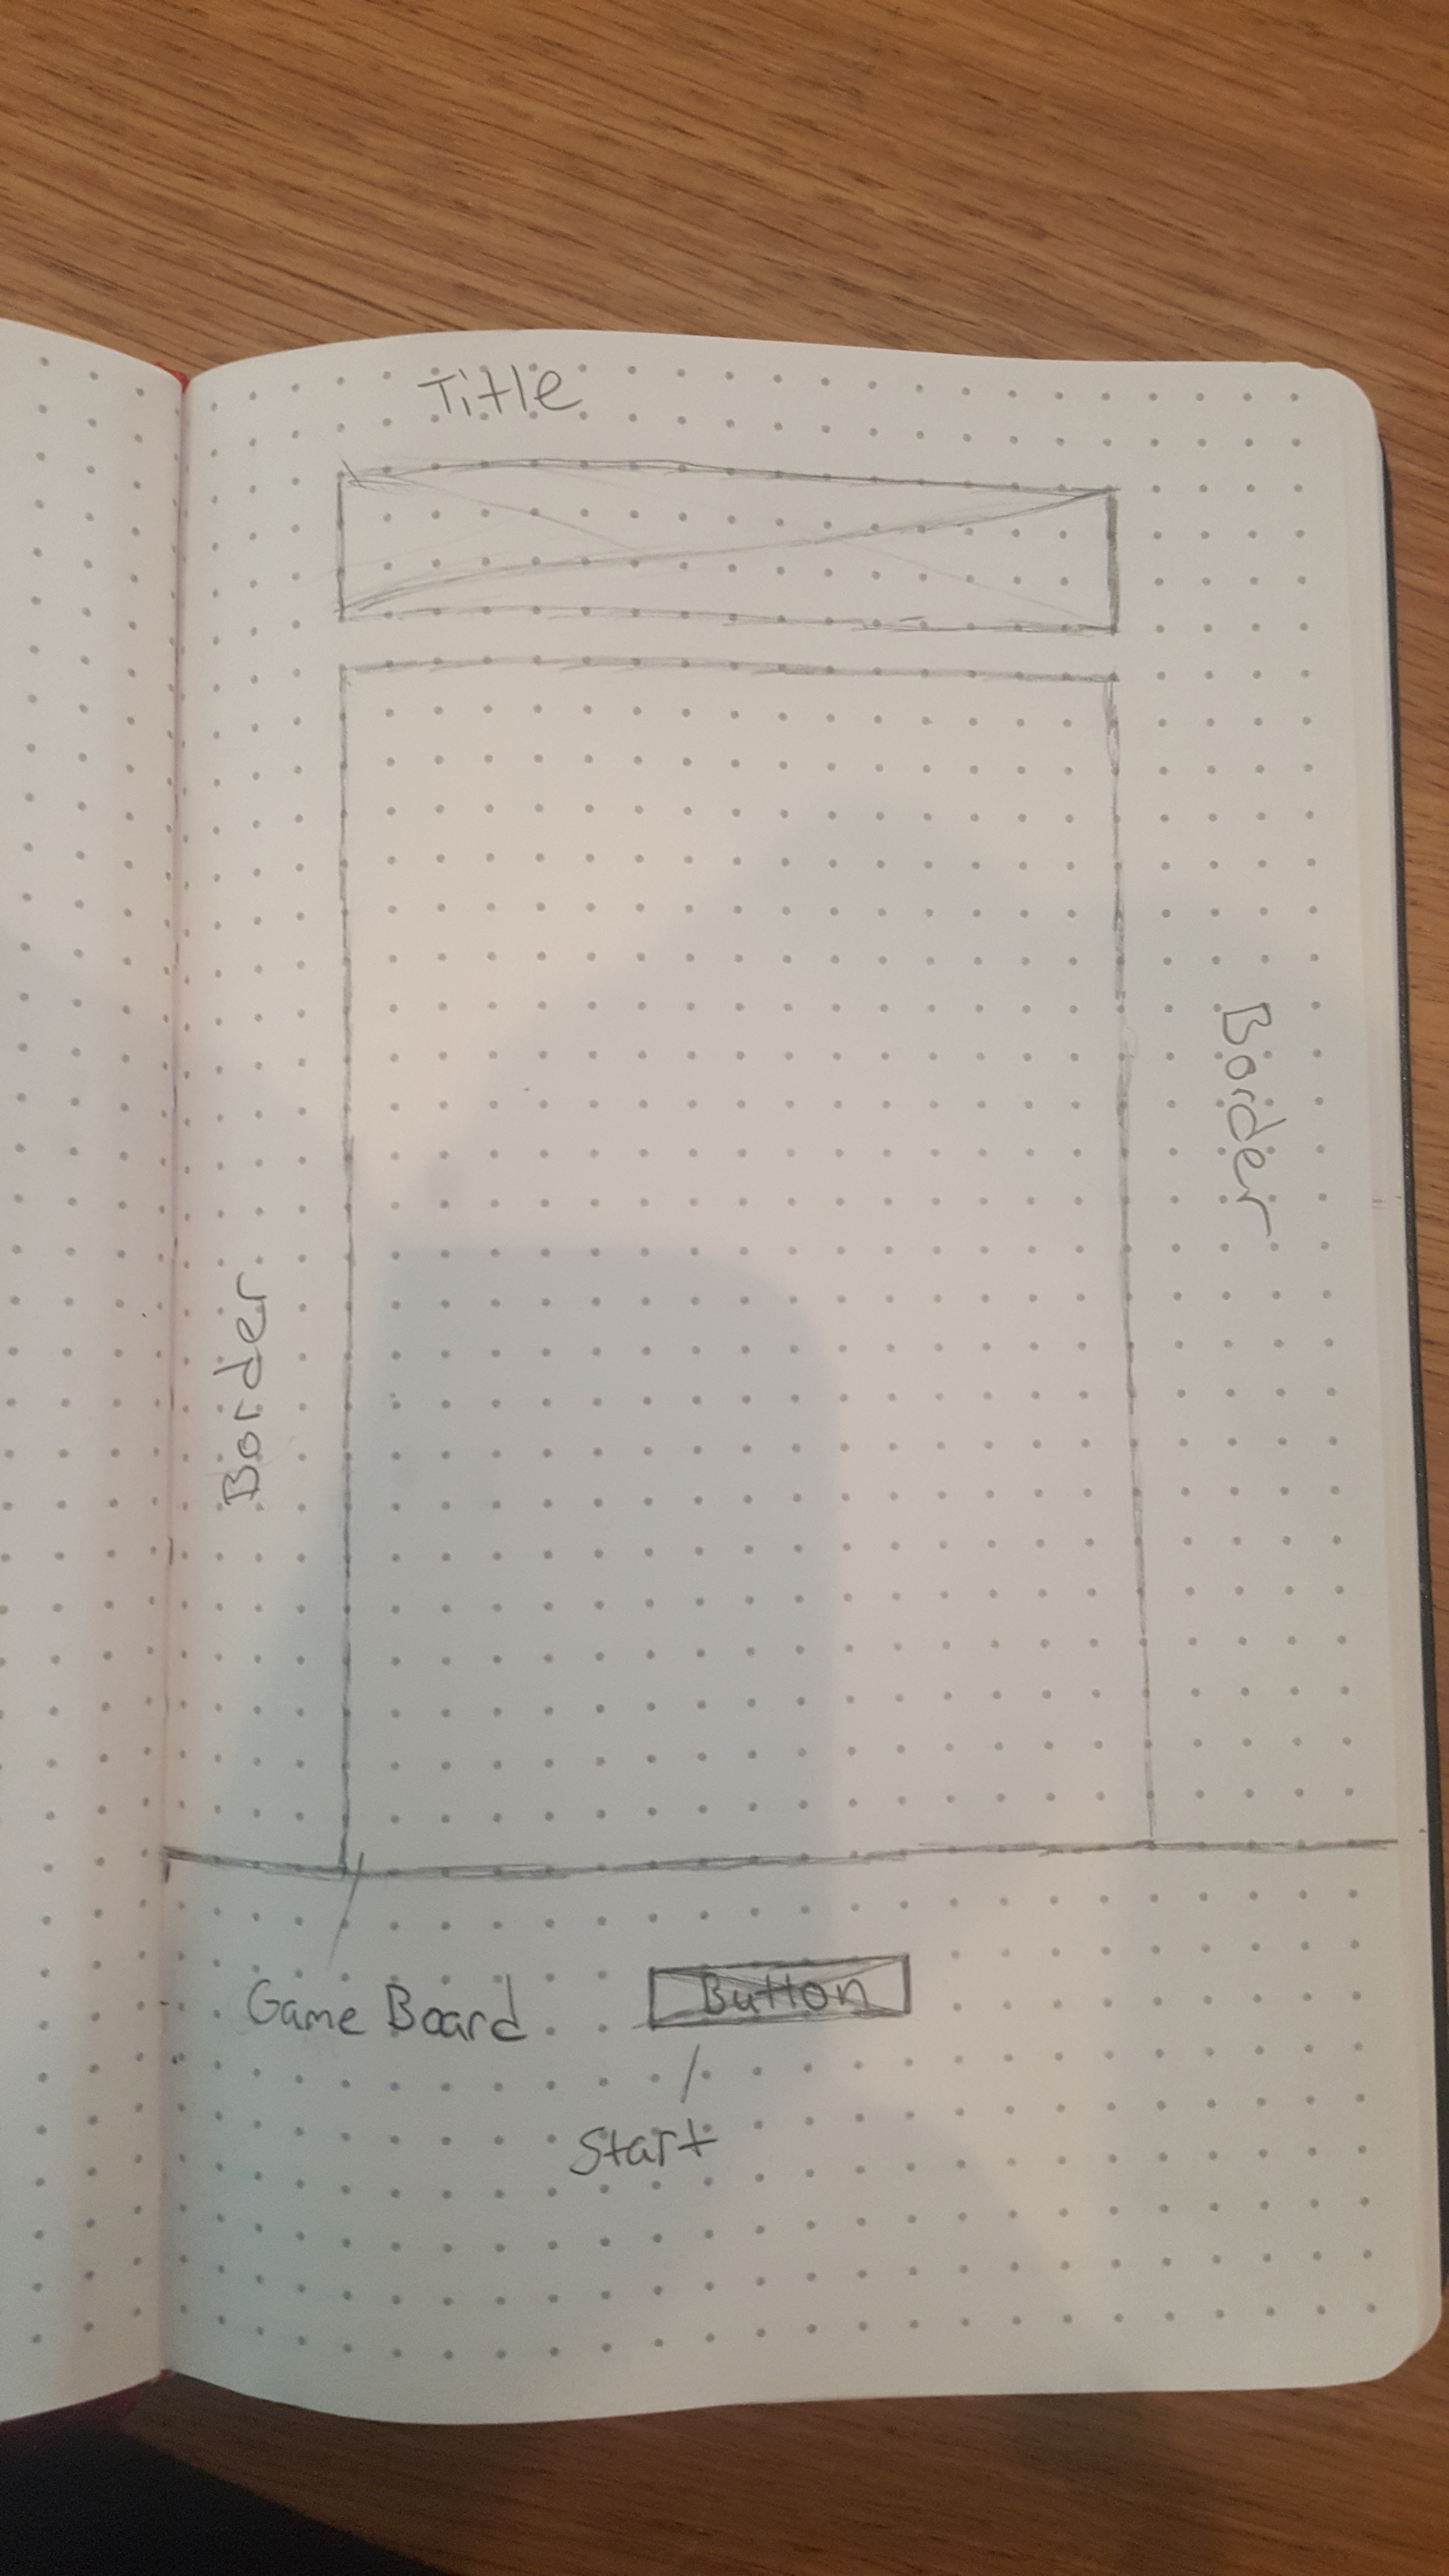 Title
Border
Border
Game Board
Button
Start